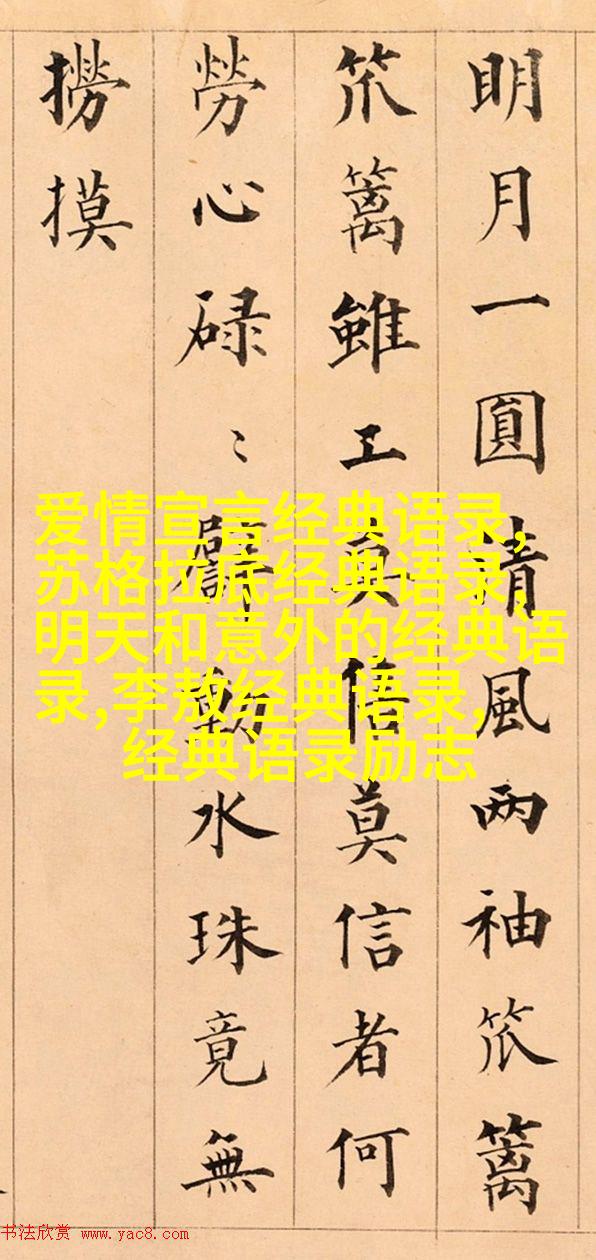 明月一圓清風两袖笊篱
笊篱雖工莫信莫信者何
勞心碌〻動水珠竟無
撈摸
爱情宣言经典语录,
苏格拉底经典语录,
明天和意外的经典语
录,李敖经典语录,
经典语录励志
书法欣赏 www.yac8.com